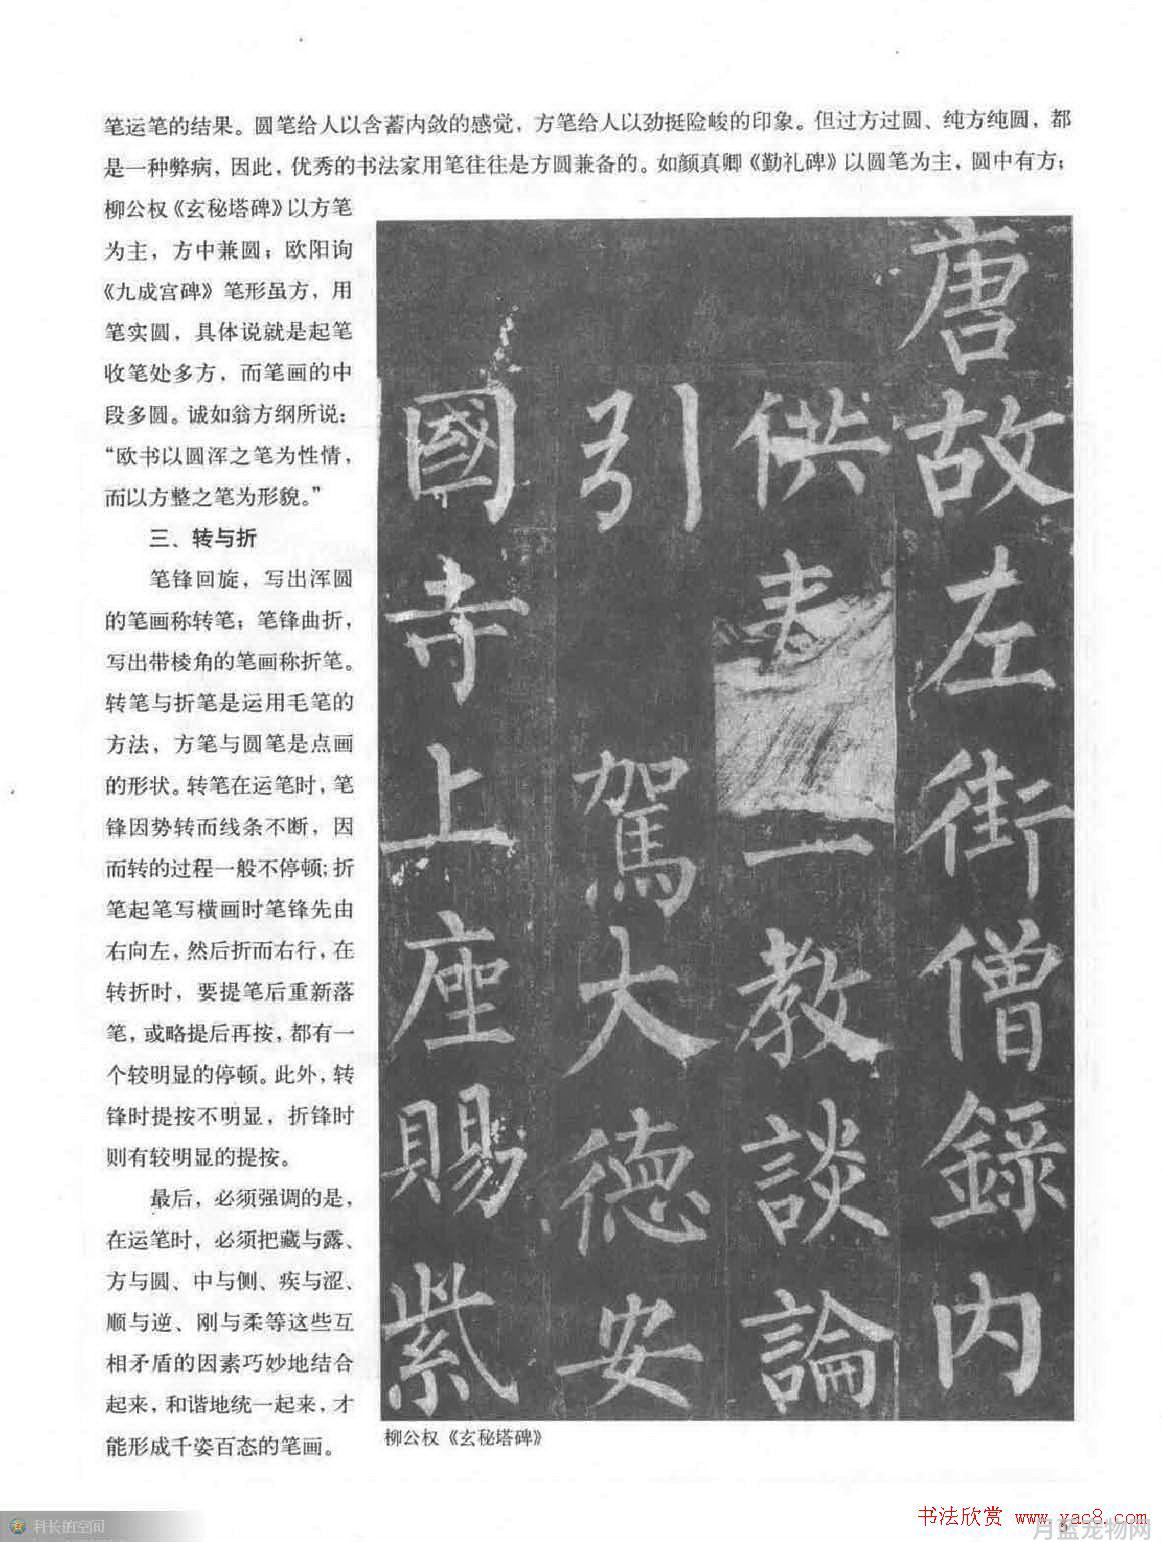 笔运笔的结果。圆笔给人以含蓄内敛的感觉，方笔给人以劲挺险峻的印象。但过方过圆、纯方纯圆，都
是一种弊病，因此，优秀的书法家用笔往往是方圆兼备的。如颜真卿《勤礼碑》以圆笔为主，圆中有方；
柳公权《玄秘塔碑》以方笔
为主，方中兼圆；欧阳询
《九成宫碑》笔形虽方，用
笔实圆，具体说就是起笔
收笔处多方，而笔画的中
段多圆。诚如翁方纲所说：
“欧书以圆浑之笔为性情，
而以方整之笔为形貌。”
三、转与折
笔锋回旋，写出浑圆
的笔画称转笔；笔锋曲折，
写出带棱角的笔画称折笔。
转笔与折笔是运用毛笔的
方法，方笔与圆笔是点画
的形状。转笔在运笔时，笔
锋因势转而线条不断，因
而转的过程一般不停顿；折
笔起笔写横画时笔锋先由
右向左，然后折而右行，在
转折时，要提笔后重新落
笔，或略提后再按，都有一
个较明显的停顿。此外，转
锋时提按不明显，折锋时
则有较明显的提按。
最后，必须强调的是，
在运笔时，必须把藏与露、
方与圆、中与侧、疾与涩、
顺与逆、刚与柔等这些互
相矛盾的因素巧妙地结合
起来，和谐地统一起来，才
能形成千姿百态的笔画。
唐故左街僧錄内
供一教談論
引駕大德安
國寺上座賜紫
柳公权《玄秘塔碑》
科长的空间
书法欣赏 www.yac8.com
月蓝宠物网